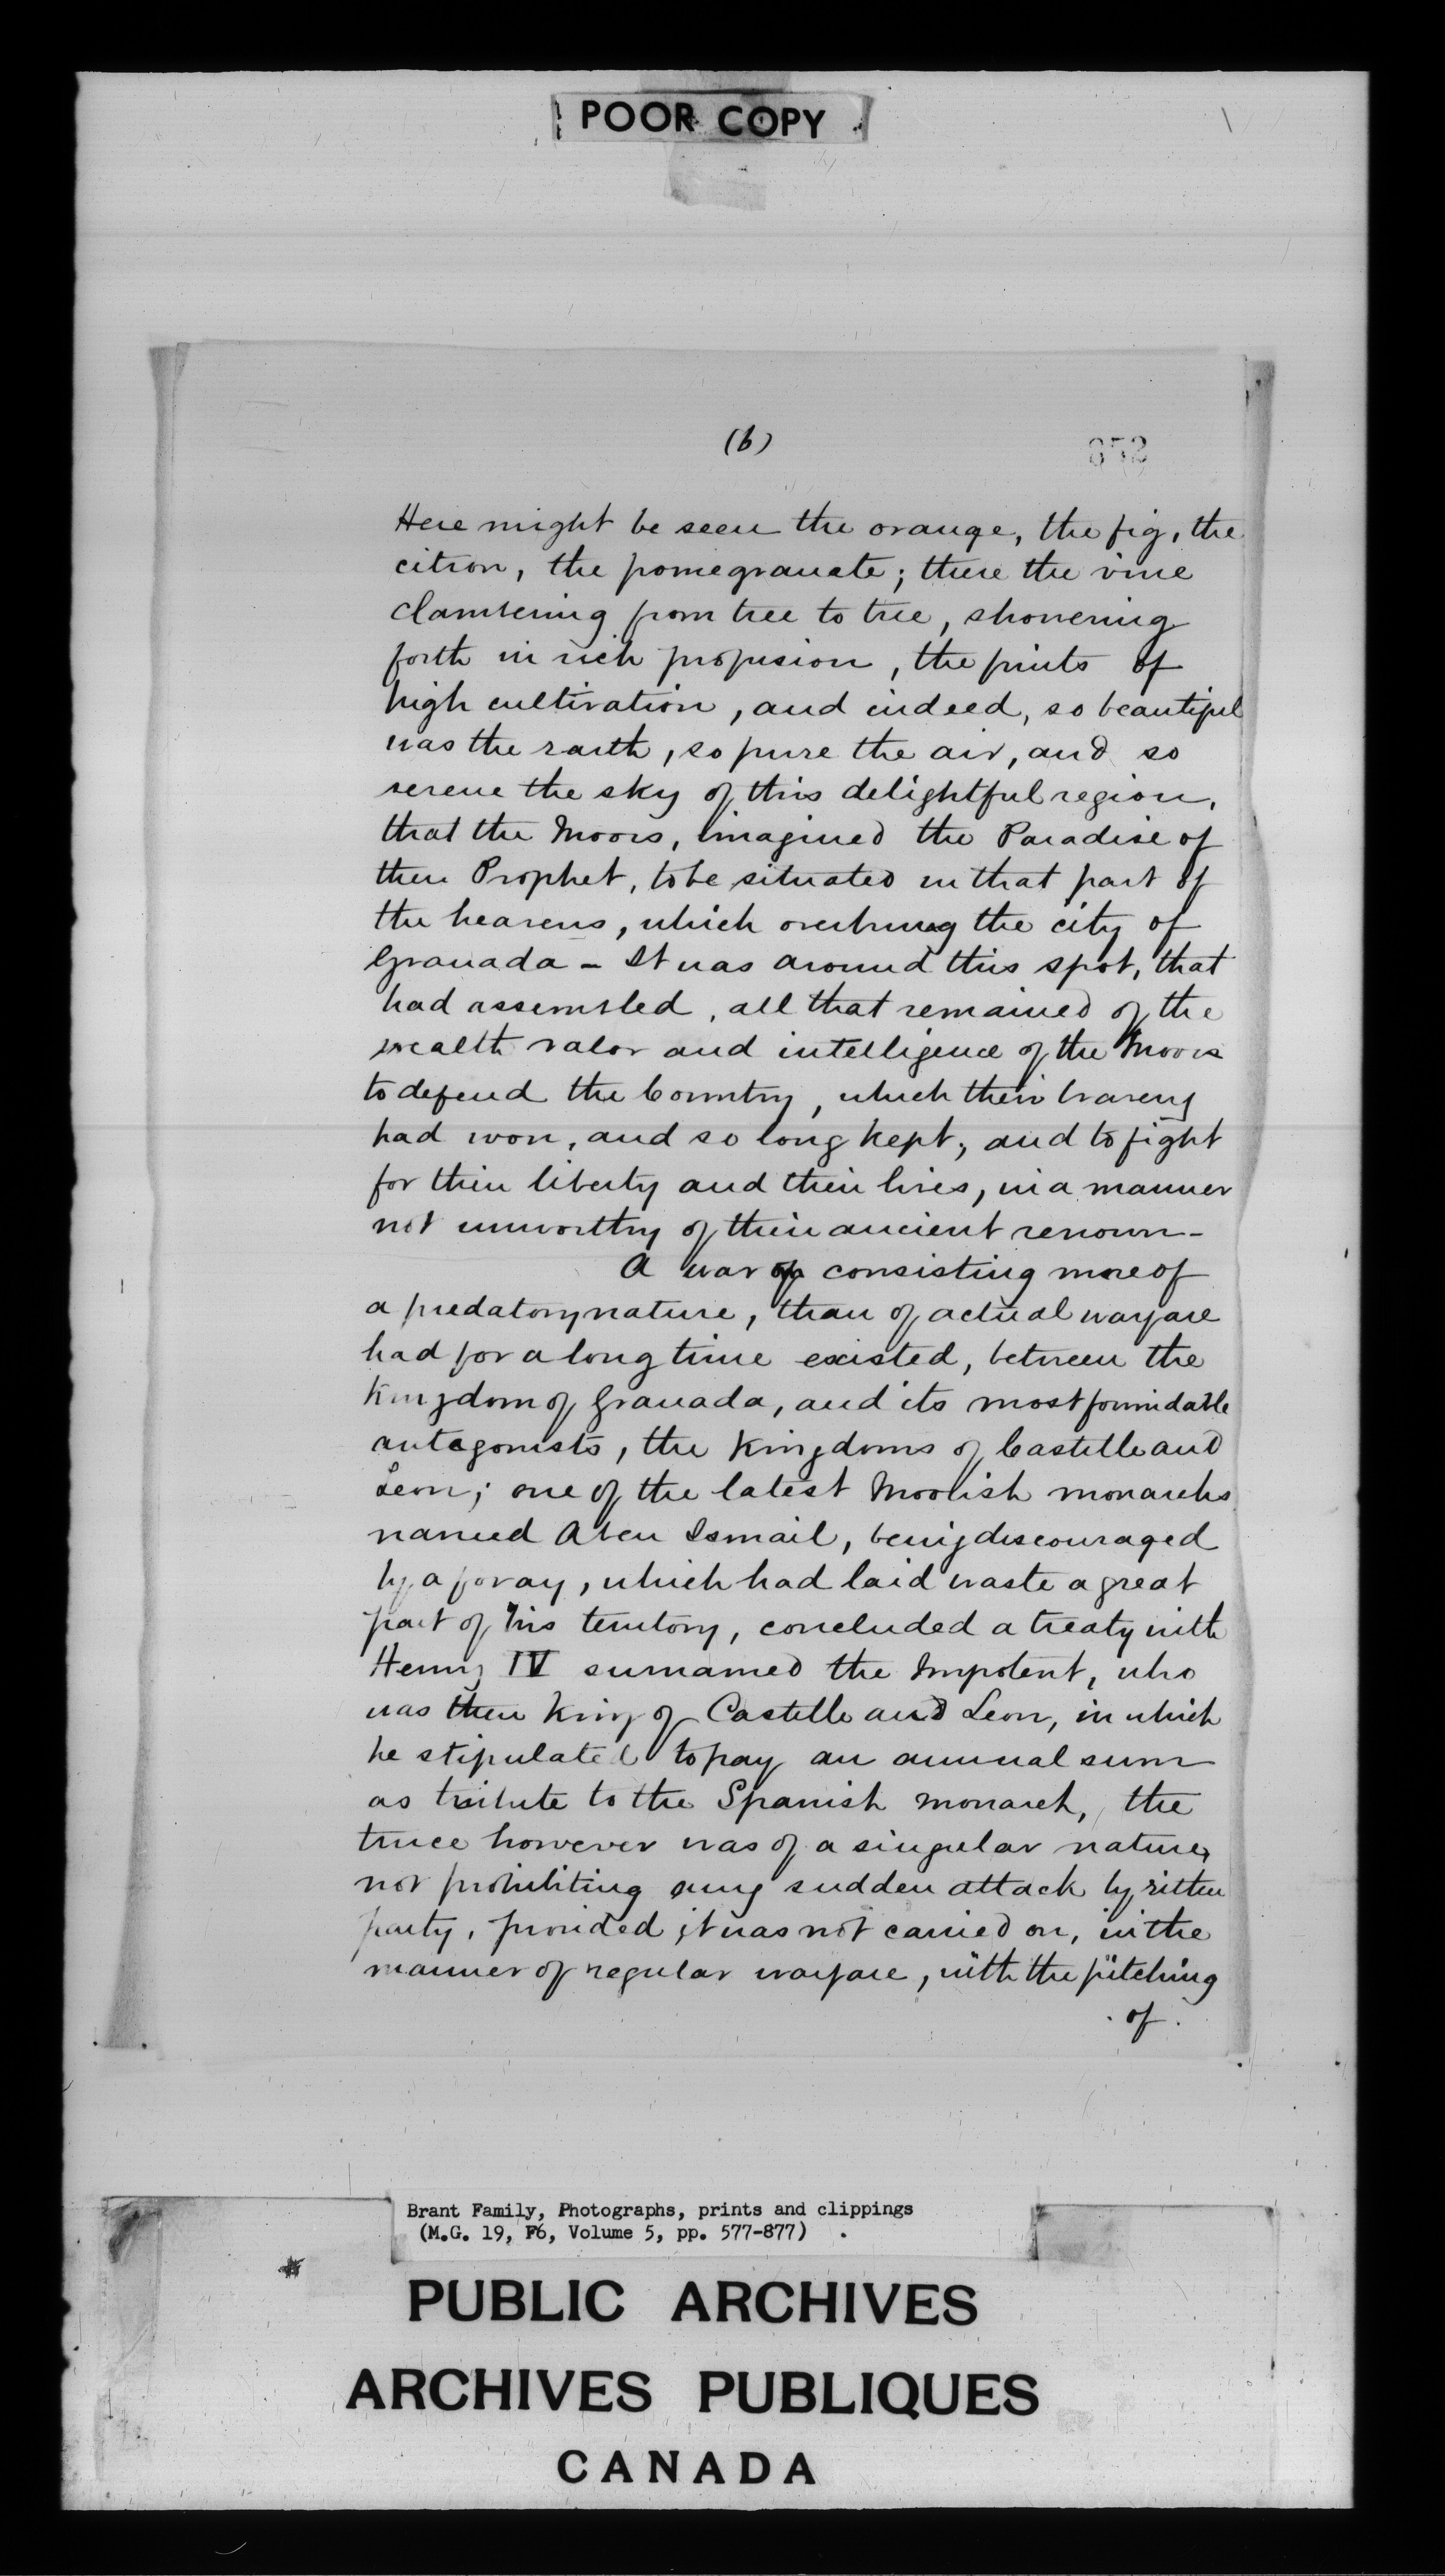 POOR COPY
(6)
852
Here might be seen the orange, the fig, the
citron, the pomegranate; there the vine
clambering from tree to tree, showering
forth in rich profusion, the fruits of
high cultivation, and indeed, so beautiful
was the earth, so pure the air, and so
serene the sky of this delightful region,
that the Moors, imagined the Paradise of
their Prophet, to be situated in that part of
the heavens, which overhung the city of
Granada - It was around this spot, that
had assembled, all that remained of the
wealth valor and intelligence of the Moors
to defend the Country, which their bravery
had won, and so long kept, and to fight
for their liberty and their lives, in a manner
not unworthy of their ancient renown -
A war of consisting more of
a predatory nature, than of actual warfare
had for a long time existed, between the
Kingdom of Granada, and its most formidable
antagonists, the Kingdoms of Castille and
Leon; one of the latest Moorish monarchs
named Aben Ismail, being discouraged
by a foray, which had laid waste a great
part of his territory, concluded a treaty with
Henry IV surnamed the Impotent, who
was then King of Castille and Leon, in which
he stipulated to pay an annual sum
as tribute to the Spanish monarch, the
truce however was of a singular nature,
not prohibiting any sudden attack by either
party, provided it was not carried on, in the
manner of regular warfare, with the pitching
of.
Brant Family, Photographs, prints and clippings
(M.G. 19, F6, Volume 5, pp. 577-877)
PUBLIC ARCHIVES
ARCHIVES PUBLIQUES
CANADA